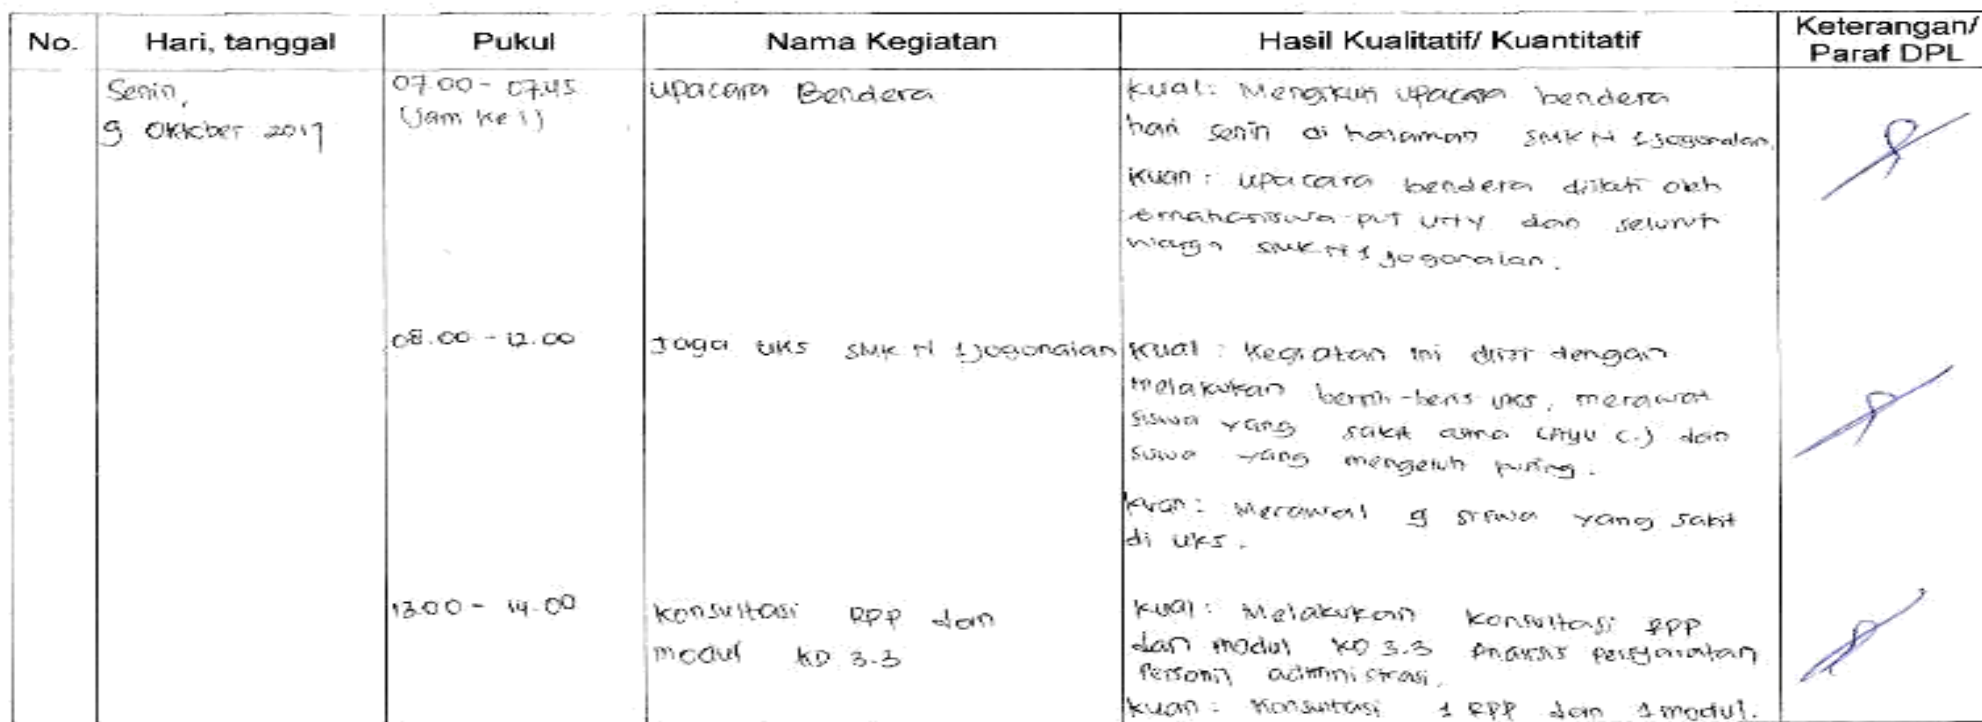 No. Hari, tanggal Pukul Nama Kegiatan Hasil Kualitatif/ Kuantitatif Keterangan/ Paraf DPL
Senin, 07.00 - 07.45 Upacara Bendera Kual: Mengikuti upacara bendera
9 Oktober 2017 (Jam ke 1) hari senin di halaman SMK N 1 Jogonalan.
Kuan: upacara bendera diikuti oleh
mahasiswa PLT UNY dan seluruh
warga SMK N 1 Jogonalan.
08.00 - 12.00 Jaga UKS SMK N 1 Jogonalan Kual: Kegiatan ini diisi dengan
melakukan bersih-beris UKS, merawat
siswa yang sakit asma (Ayu C.) dan
siswa yang mengeluh pusing.
Kuan: Merawat 9 siswa yang sakit
di UKS.
13.00 - 14.00 Konsultasi RPP dan Kual: Melakukan konsultasi RPP
modul KD 3.3 dan modul KD 3.3 Analisis persyaratan
Personil administrasi.
Kuan: Konsultasi 1 RPP dan 1 modul.